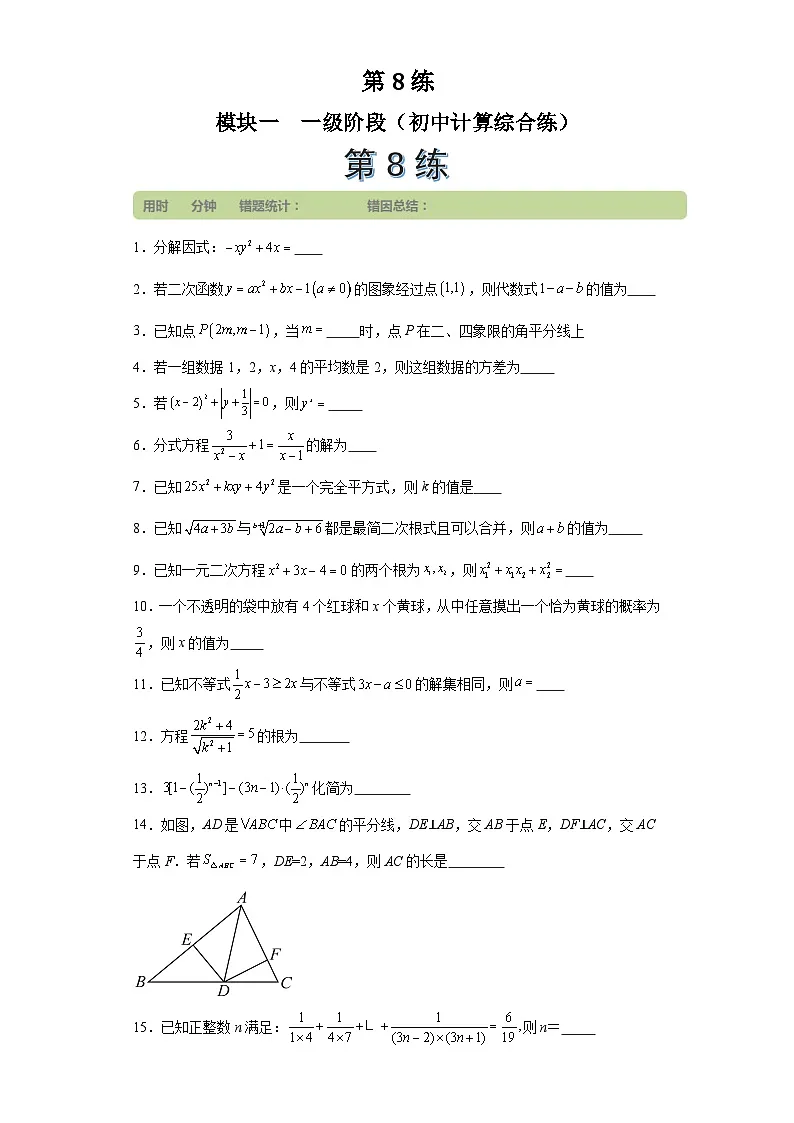 第 8 练
模块一 一级阶段（初中计算综合练）
第 8 练
用时 分钟 错题统计： 错因总结：
1．分解因式：-xy²+4x=____
2．若二次函数y=ax²+bx-1(a≠0)的图象经过点(1,1)，则代数式1-a-b的值为____
3．已知点P(2m,m-1)，当m=_____时，点P在二、四象限的角平分线上
4．若一组数据 1，2，x，4 的平均数是 2，则这组数据的方差为_____
5．若(x-2)²+|y+1/3|=0，则yˣ=_____
6．分式方程3/(x²-x)+1=x/(x-1)的解为____
7．已知25x²+kxy+4y²是一个完全平方式，则 k 的值是____
8．已知√(4a+3b)与ᵇ⁺¹√(2a-b+6)都是最简二次根式且可以合并，则a+b的值为_____
9．已知一元二次方程x²+3x-4=0的两个根为x₁,x₂，则x₁²+x₁x₂+x₂²=____
10．一个不透明的袋中放有 4 个红球和 x 个黄球，从中任意摸出一个恰为黄球的概率为
3/4，则 x 的值为_____
11．已知不等式1/2x-3≥2x与不等式3x-a≤0的解集相同，则a=____
12．方程(2k²+4)/√(k²+1)=5的根为_______
13．3[1-(1/2)ⁿ⁻¹]-(3n-1)·(1/2)ⁿ化简为________
14．如图，AD 是VABC中∠BAC的平分线，DE⊥AB，交 AB 于点 E，DF⊥AC，交 AC
于点 F．若S△ABC=7，DE=2，AB=4，则 AC 的长是________
A
E
F
B
D
C
15．已知正整数 n 满足：1/(1×4)+1/(4×7)+L+1/((3n-2)×(3n+1))=6/19,则 n＝_____